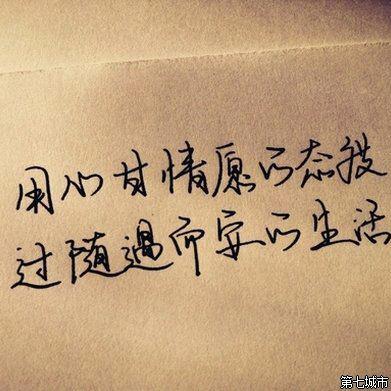 用心甘情愿的态度
过随遇而安的生活
第七城市